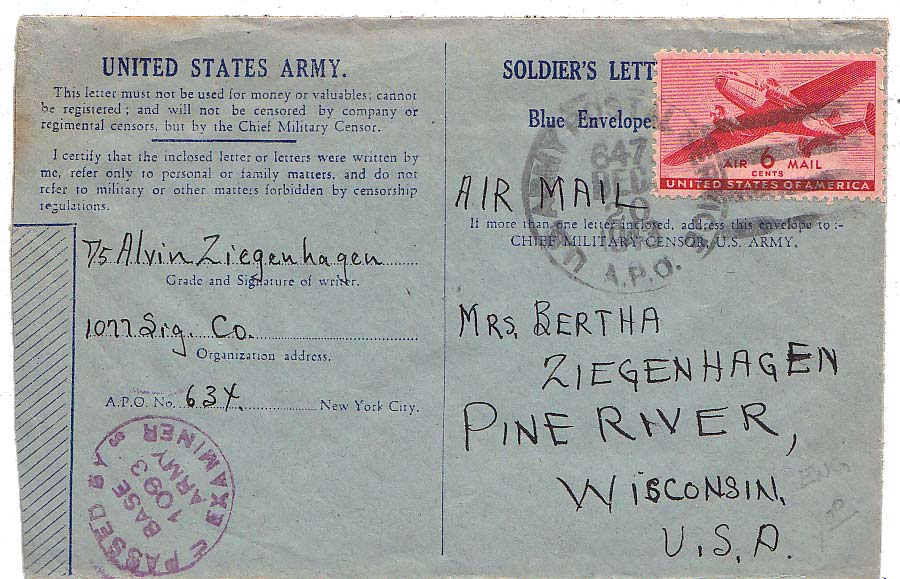 UNITED STATES ARMY.
This letter must not be used for money or valuables; cannot
be registered; and will not be censored by company or
regimental censors, but by the Chief Military Censor.
I certify that the inclosed letter or letters were written by
me, refer only to personal or family matters, and do not
refer to military or other matters forbidden by censorship
regulations.
T/5 Alvin Ziegenhagen
Grade and Signature of writer.
1077 Sig. Co.
Organization address.
A.P.O. No. 634. New York City.
PASSED BY
BASE
1093
ARMY
EXAMINER
SOLDIER'S LETT
Blue Envelope
AIR 6 MAIL
CENTS
UNITED STATES OF AMERICA
U.S. ARMY POSTAL SERVICE
647
DEC
20
A.P.O.
AIR MAIL
If more than one letter inclosed, address this envelope to :-
CHIEF MILITARY CENSOR, U.S. ARMY.
MRS. BERTHA
ZIEGENHAGEN
PINE RIVER,
WISCONSIN.
U.S.A.
ENG